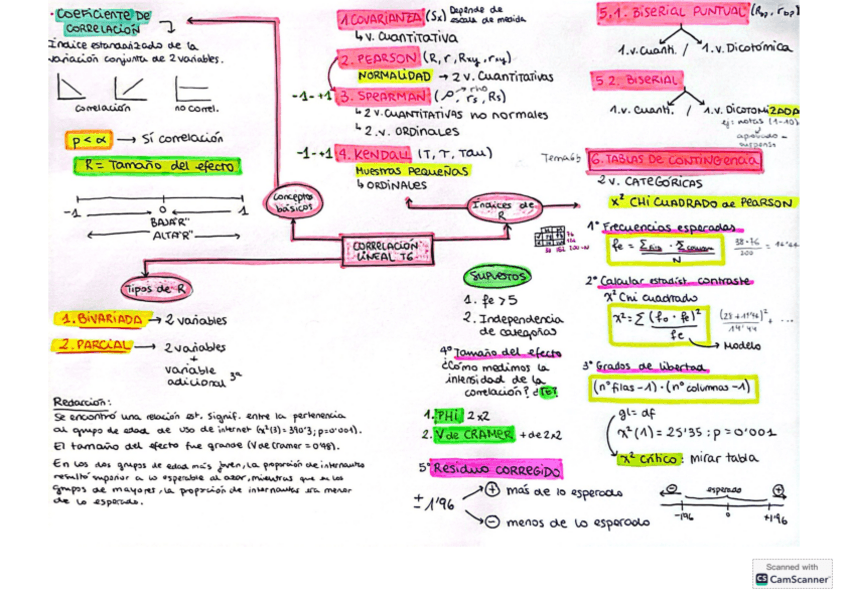 · COEFICIENTE DE
CORRELACIÓN
Índice estandarizado de la
variación conjunta de 2 variables.
correlación
no correl.
p < α → Sí correlación
R = Tamaño del efecto
-1 0 1
BAJA "R"
ALTA "R"
conceptos
básicos
Índices de
R
CORRELACIÓN
LINEAL T6
Tipos de R
1. BIVARIADA → 2 variables
2. PARCIAL → 2 variables
+
variable
adicional 3ª
Redacción:
Se encontró una relación est. signif. entre la pertenencia
al grupo de edad de uso de internet (x²(3)=390'3; p=0'001).
El tamaño del efecto fue grande (V de Cramer = 0'48).
En los dos grupos de edad más joven, la proporción de internautas
resultó superior a lo esperable al azar, mientras que en los
grupos de mayores, la proporción de internautas era menor
de lo esperado.
1 COVARIANZA (Sx) Depende de
escala de medida
↳ v. cuantitativa
2. PEARSON (R, r, Rxy, rxy)
NORMALIDAD → 2 v. Cuantitativas
-1 - +1 3. SPEARMAN (ρ, rs, Rs)
rho
↳ 2 v. CUANTITATIVAS no normales
↳ 2. v. ORDINALES
-1 - +1 4. KENDALL (T, τ, Tau)
MUESTRAS PEQUEÑAS
↳ ORDINALES
5.1. BISERIAL PUNTUAL (Rbp, rbp)
1. v. cuanti. / 1. v. Dicotómica
5.2. BISERIAL
1. v. Cuanti. / 1. v. DICOTOMIZADA
ej: notas (1-10)
aprobado -
suspenso
Tema 6b 6. TABLAS DE CONTINGENCIA
2 v. CATEGÓRICAS
X² CHI CUADRADO de PEARSON
1º Frecuencias esperadas
fe = Σfila · Σcolumn / N
38·76 / 200 = 14'44
2º Calcular estadíst. contraste
X² Chi cuadrado
X² = Σ (fo - fe)² / fe
(28+14'44)² / 14'44 + ...
→ Modelo
3º Grados de libertad
(nº filas - 1) · (nº columnas - 1)
gl = df
X²(1) = 25'35 ; p = 0'001
X² crítico: mirar tabla
SUPUESTOS
1. fe > 5
2. Independencia
de categorías
4º Tamaño del efecto
¿Cómo medimos la
intensidad de la
correlación? ¿TE?
1. PHi 2x2
2. V de CRAMER + de 2x2
5º Residuo CORREGIDO
± 1'96
+ más de lo esperado
- menos de lo esperado
- esperado +
-1'96 0 +1'96
Scanned with
CS CamScanner